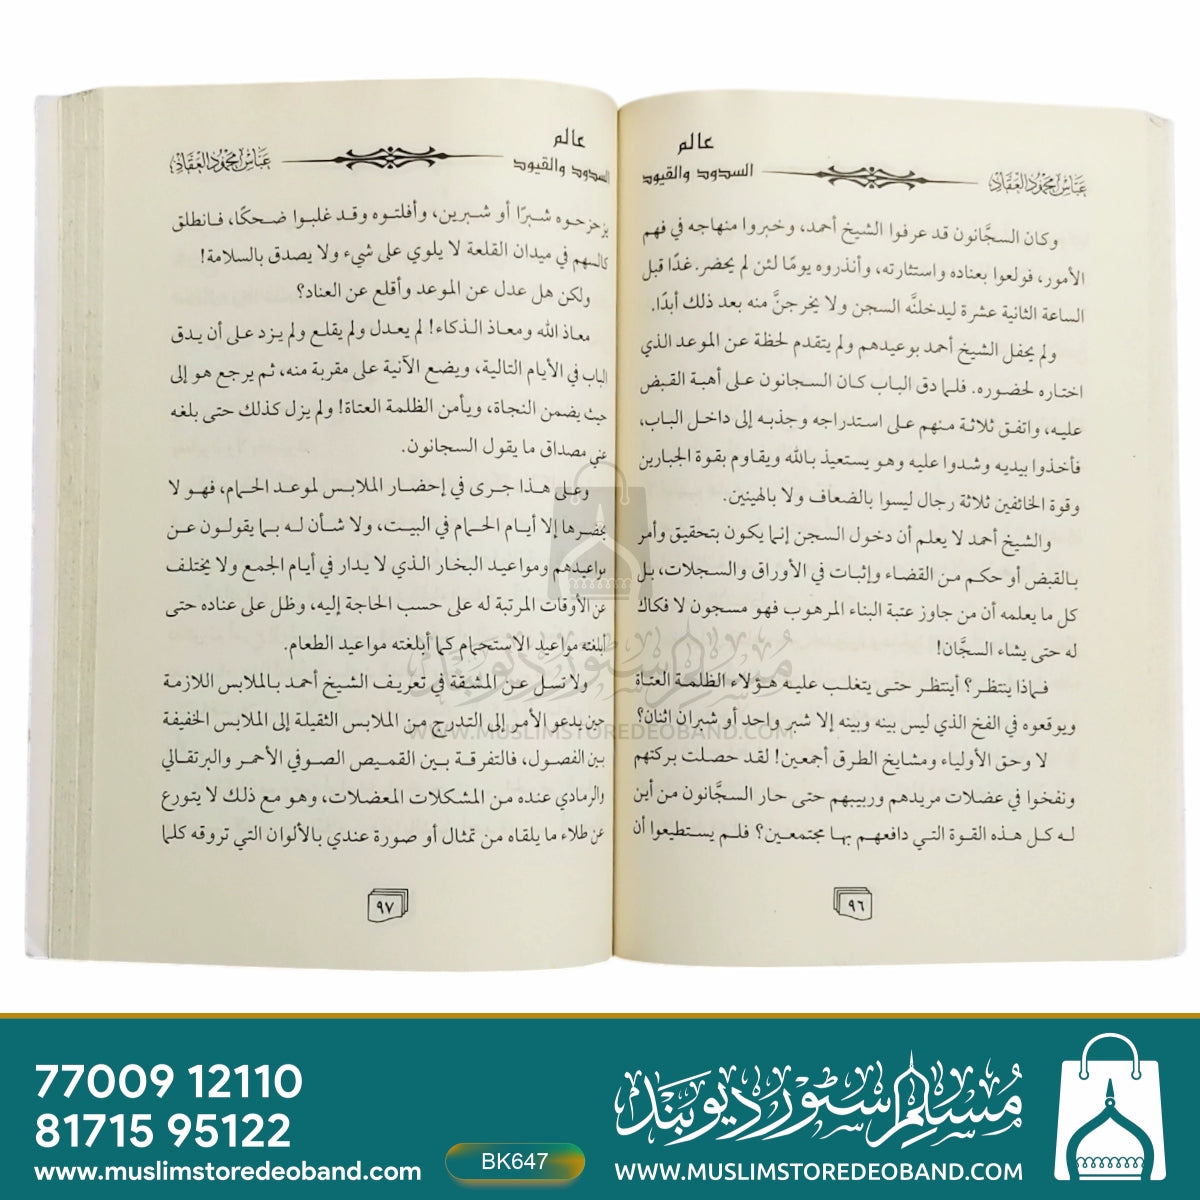 عالم
السدود والقيود
عباس محمود العقاد
وكان السجَّانون قد عرفوا الشيخ أحمد، وخبروا منهاجه في فهم
الأمور، فولعوا بعناده واستثارته، وأنذروه يومًا لئن لم يحضر. غدًا قبل
الساعة الثانية عشرة ليدخلنَّه السجن ولا يخرجنَّ منه بعد ذلك أبدًا.
ولم يحفل الشيخ أحمد بوعيدهم ولم يتقدم لحظة عن الموعد الذي
اختاره لحضوره. فلما دق الباب كان السجانون على أهبة القبض
عليه، واتفق ثلاثة منهم على استدراجه وجذبه إلى داخل الباب،
فأخذوا بيديه وشدوا عليه وهو يستعيذ بالله ويقاوم بقوة الجبارين
وقوة الخائفين ثلاثة رجال ليسوا بالضعاف ولا بالهينين.
والشيخ أحمد لا يعلم أن دخول السجن إنما يكون بتحقيق وأمر
بالقبض أو حكم من القضاء وإثبات في الأوراق والسجلات، بل
كل ما يعلمه أن من جاوز عتبة البناء المرهوب فهو مسجون لا فكاك
له حتى يشاء السجَّان!
فماذا ينتظر؟ أينتظر حتى يتغلب عليه هؤلاء الظلمة العتاة
ويوقعوه في الفخ الذي ليس بينه وبينه إلا شبر واحد أو شبران اثنان؟
لا وحق الأولياء ومشايخ الطرق أجمعين! لقد حصلت بركتهم
ونفخوا في عضلات مريدهم وربيبهم حتى حار السجَّانون من أين
له كل هذه القوة التي دافعهم بها مجتمعين؟ فلم يستطيعوا أن
٩٦
عالم
السدود والقيود
عباس محمود العقاد
يزحزحوه شبرًا أو شبرين، وأفلتوه وقد غلبوا ضحكًا، فانطلق
كالسهم في ميدان القلعة لا يلوي على شيء ولا يصدق بالسلامة!
ولكن هل عدل عن الموعد وأقلع عن العناد؟
معاذ الله ومعاذ الذكاء! لم يعدل ولم يقلع ولم يزد على أن يدق
الباب في الأيام التالية، ويضع الآنية على مقربة منه، ثم يرجع هو إلى
حيث يضمن النجاة، ويأمن الظلمة العتاة! ولم يزل كذلك حتى بلغه
عني مصداق ما يقول السجانون.
وعلى هذا جرى في إحضار الملابس لموعد الحمام، فهو لا
يحضرها إلا أيام الحمام في البيت، ولا شأن له بما يقولون عن
مواعيدهم ومواعيد البخار الذي لا يدار في أيام الجمع ولا يختلف
عن الأوقات المرتبة له على حسب الحاجة إليه، وظل على عناده حتى
أبلغته مواعيد الاستحمام كما أبلغته مواعيد الطعام.
ولا تسل عن المشقة في تعريف الشيخ أحمد بالملابس اللازمة
حين يدعو الأمر إلى التدرج من الملابس الثقيلة إلى الملابس الخفيفة
بين الفصول، فالتفرقة بين القميص الصوفي الأحمر والبرتقالي
والرمادي عنده من المشكلات المعضلات، وهو مع ذلك لا يتورع
عن طلاء ما يلقاه من تمثال أو صورة عندي بالألوان التي تروقه كلما
٩٧
مسلم ستور ديوبند
WWW.MUSLIMSTOREDEOBAND.COM
77009 12110
81715 95122
www.muslimstoredeoband.com
BK647
مسلم ستور ديوبند
WWW.MUSLIMSTOREDEOBAND.COM